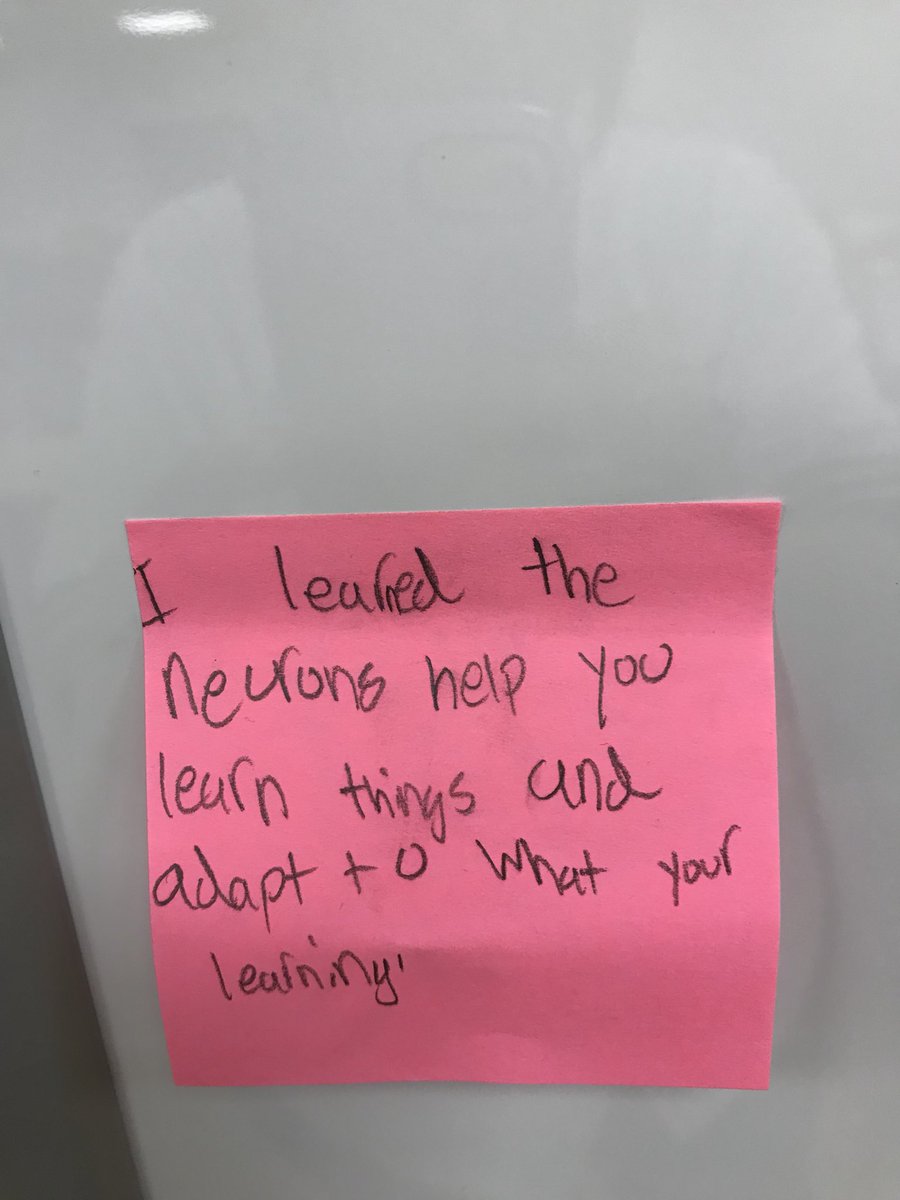 I learned the
neurons help you
learn things and
adapt to what your
learning'